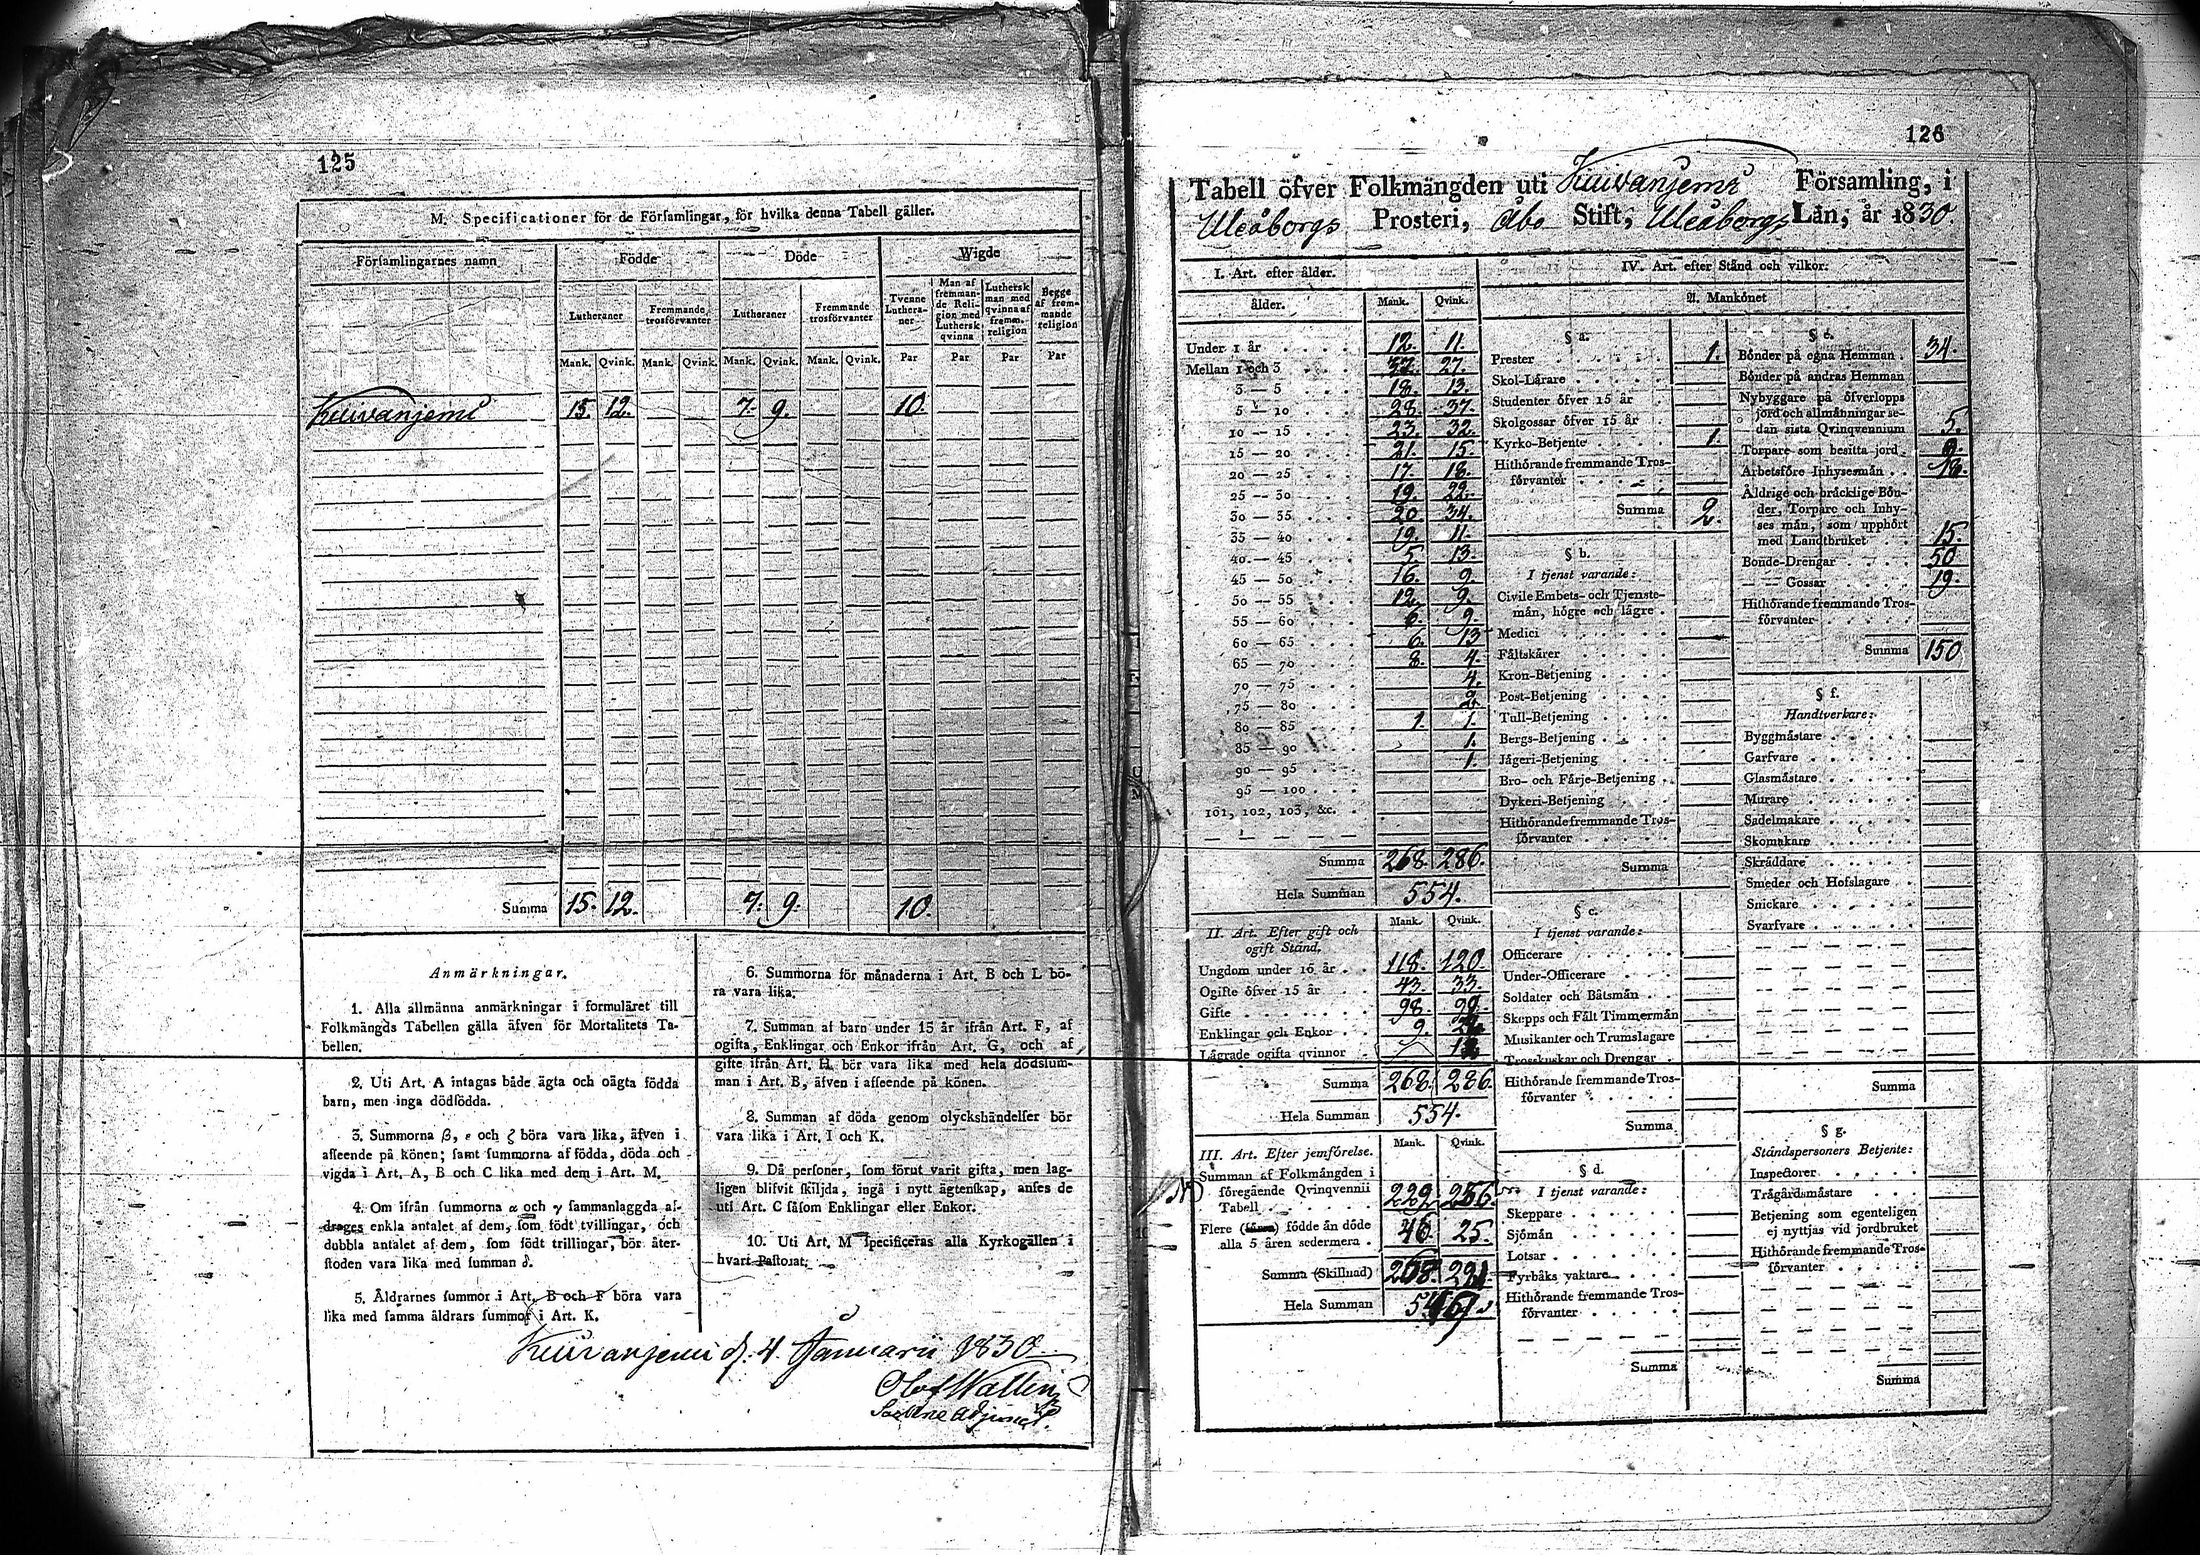 125
M. Specificationer för de Församlingar, för hvilka denna Tabell gäller.
Församlingarnes namn
Födde
Döde
Wigde
Lutheraner
Fremmande trosförvanter
Lutheraner
Fremmande trosförvanter
Tvenne Lutheraner
Man af fremmande Religion med Luthersk qvinna
Luthersk man med qvinna af fremm. religion
Begge af fremmande religion
Mank. Qvink. Mank. Qvink. Mank. Qvink. Mank. Qvink. Par Par Par Par
Kuivanjemi 15. 12. 7. 9. 10.
Summa 15. 12. 7. 9. 10.
Anmärkningar.
1. Alla allmänna anmärkningar i formuläret till
Folkmängds Tabellen gälla äfven för Mortalitets Ta-
bellen.
2. Uti Art. A intagas både ägta och oägta födda
barn, men inga dödfödda.
3. Summorna β, ε och ζ böra vara lika, äfven i
afseende på könen; samt summorna af födda, döda och
vigda i Art. A, B och C lika med dem i Art. M.
4. Om ifrån summorna α och γ sammanlaggda af-
drages enkla antalet af dem, som födt tvillingar, och
dubbla antalet af dem, som födt trillingar, bör åter-
stoden vara lika med summan δ.
5. Åldrarnes summor i Art. B och F böra vara
lika med samma åldrars summor i Art. K.
6. Summorna för månaderna i Art. B och L bö-
ra vara lika.
7. Summan af barn under 15 år ifrån Art. F, af
ogifta, Enklingar och Enkor ifrån Art. G, och af
gifte ifrån Art. H bör vara lika med hela dödssum-
man i Art. B, äfven i afseende på könen.
8. Summan af döda genom olyckshändelser bör
vara lika i Art. I och K.
9. Då personer, som förut varit gifta, men lag-
ligen blifvit skiljda, ingå i nytt ägtenskap, anses de
uti Art. C såsom Enklingar eller Enkor.
10. Uti Art. M specificeras alla Kyrkogällen i
hvart Pastorat.
Kuivanjemi d. 4 Januarii 1830
Olof Wallin
126
Tabell öfver Folkmängden uti Kuivanjemi Församling, i
Uleåborgs Prosteri, Åbo Stift, Uleåborgs Län, år 1830
I. Art. efter ålder.
ålder. Mank. Qvink.
Under 1 år 12. 11.
Mellan 1 och 3 37. 27.
3 — 5 18. 13.
5 — 10 28. 37.
10 — 15 23. 32.
15 — 20 21. 15.
20 — 25 17. 18.
25 — 30 19. 22.
30 — 35 20. 34.
35 — 40 19. 11.
40 — 45 5. 13.
45 — 50 16. 9.
50 — 55 12. 9.
55 — 60 6. 9.
60 — 65 6. 13
65 — 70 8. 4.
70 — 75 4.
75 — 80 2.
80 — 85 1. 1.
85 — 90 1.
90 — 95 1.
95 — 100
101, 102, 103, &c.
Summa 268. 286.
Hela Summan 554.
II. Art. Efter gift och
ogift Stånd.
Mank. Qvink.
Ungdom under 16 år 118. 120.
Ogifte öfver 15 år 43. 33.
Gifte 98. 99.
Enklingar och Enkor 9.
Lägrade ogifta qvinnor
Summa 268. 286.
Hela Summan 554.
III. Art. Efter jemförelse.
Mank. Qvink.
Summan af Folkmängden i
föregående Qvinqvennii
Tabell 222 256
Flere födde än döde
alla 5 åren sedermera 46 25.
Summa (Skillnad) 268. 281.
Hela Summan
IV. Art. efter Stånd och vilkor.
A. Mankönet
§ a.
Prester 1.
Skol-Lärare
Studenter öfver 15 år
Skolgossar öfver 15 år
Kyrko-Betjente 1.
Hithörande fremmande Tros-
förvanter
Summa 2.
§ b.
I tjenst varande:
Civile Embets- och Tjenste-
män, högre och lägre
Medici
Fältskärer
Kron-Betjening
Post-Betjening
Tull-Betjening
Bergs-Betjening
Jägeri-Betjening
Bro- och Färje-Betjening
Dykeri-Betjening
Hithörande fremmande Tros-
förvanter
Summa
§ c.
I tjenst varande:
Officerare
Under-Officerare
Soldater och Båtsmän
Skepps och Fält Timmermän
Musikanter och Trumslagare
Trosskuskar och Drengar
Hithörande fremmande Tros-
förvanter
Summa
§ d.
I tjenst varande:
Skeppare
Sjömän
Lotsar
Fyrbåks vaktare
Hithörande fremmande Tros-
förvanter
Summa
§ e.
Bönder på egna Hemman 34.
Bönder på andras Hemman
Nybyggare på öfverlopps
jord och allmänningar se-
dan sista Qvinqvennium 5.
Torpare som besitta jord 9.
Arbetsföre Inhysesmän 18.
Åldrige och bräcklige Bön-
der, Torpare och Inhy-
ses män, som upphört
med Landtbruket 15.
Bonde-Drengar 50
— Gossar 19.
Hithörande fremmande Tros-
förvanter
Summa 150
§ f.
Handtverkare:
Byggmästare
Garfvare
Glasmästare
Murare
Sadelmakare
Skomakare
Skräddare
Smeder och Hofslagare
Snickare
Svarfvare
Summa
§ g.
Ståndspersoners Betjente:
Inspectorer
Trägårdsmästare
Betjening som egenteligen
ej nyttjas vid jordbruket
Hithörande fremmande Tros-
förvanter
Summa